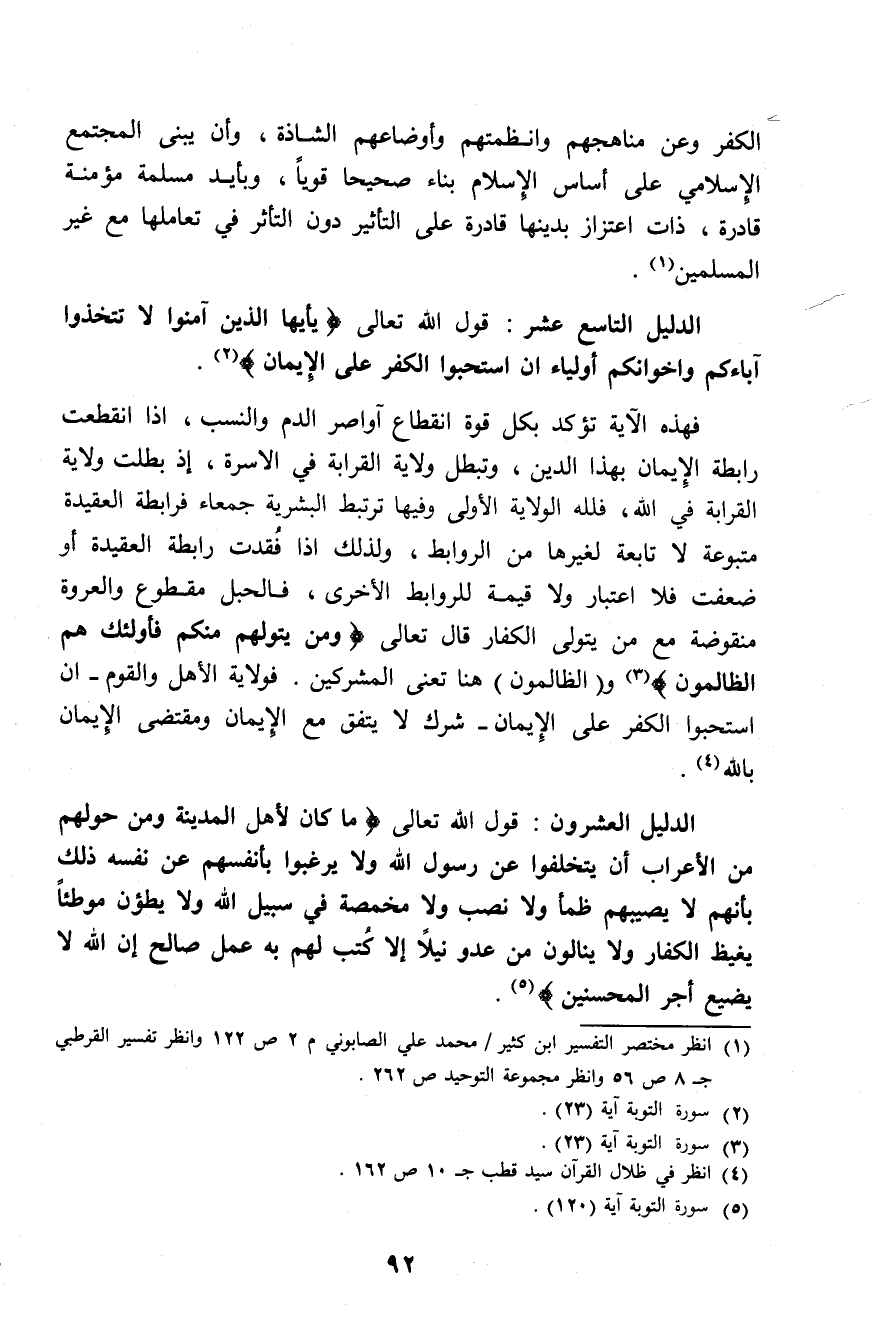 الكفر وعن مناهجهم وانـظمتهم وأوضاعهم الشـاذة ، وأن يبنى المجتمع
الإسلامي على أساس الإسلام بناء صحيحا قوياً ، وبأيـد مسلمة مؤمنـة
قادرة ، ذات اعتزاز بدينها قادرة على التأثير دون التأثر في تعاملها مع غير
المسلمين(١) .
الدليل التاسع عشر : قول الله تعالى ﴿ يأيها الذين آمنوا لا تتخذوا
آباءكم واخوانكم أولياء ان استحبوا الكفر على الإيمان ﴾(٢) .
فهذه الآية تؤكد بكل قوة انقطاع آواصر الدم والنسب ، اذا انقطعت
رابطة الإيمان بهذا الدين ، وتبطل ولاية القرابة في الاسرة ، إذ بطلت ولاية
القرابة في الله ، فلله الولاية الأولى وفيها ترتبط البشرية جمعاء فرابطة العقيدة
متبوعة لا تابعة لغيرها من الروابط ، ولذلك اذا فُقدت رابطة العقيدة أو
ضعفت فلا اعتبار ولا قيمـة للروابط الأخرى ، فـالحبل مقـطوع والعروة
منقوضة مع من يتولى الكفار قال تعالى ﴿ ومن يتولهم منكم فأولئك هم
الظالمون ﴾(٣) و( الظالمون ) هنا تعنى المشركين . فولاية الأهل والقوم ـ ان
استحبوا الكفر على الإيمان ـ شرك لا يتفق مع الإيمان ومقتضى الإيمان
بالله(٤) .
الدليل العشرون : قول الله تعالى ﴿ ما كان لأهل المدينة ومن حولهم
من الأعراب أن يتخلفوا عن رسول الله ولا يرغبوا بأنفسهم عن نفسه ذلك
بأنهم لا يصيبهم ظمأ ولا نصب ولا مخمصة في سبيل الله ولا يطؤن موطئاً
يغيظ الكفار ولا ينالون من عدو نيلاً إلا كُتب لهم به عمل صالح إن الله لا
يضيع أجر المحسنين ﴾(٥) .
(١) انظر مختصر التفسير ابن كثير / محمد علي الصابوني م ٢ ص ١٢٢ وانظر تفسير القرطبي
جـ ٨ ص ٥٦ وانظر مجموعة التوحيد ص ٢٦٢ .
(٢) سورة التوبة آية (٢٣) .
(٣) سورة التوبة آية (٢٣) .
(٤) انظر في ظلال القرآن سيد قطب جـ ١٠ ص ١٦٢ .
(٥) سورة التوبة آية (١٢٠) .
٩٢